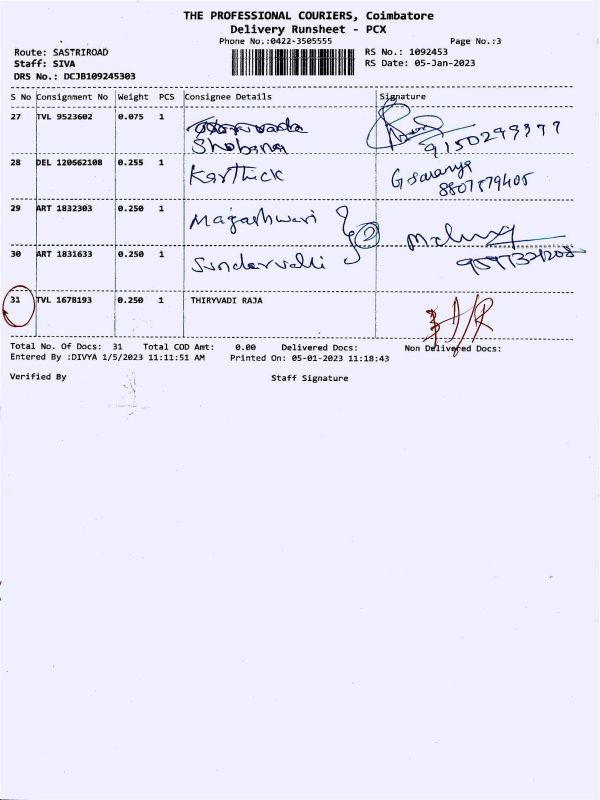 THE PROFESSIONAL COURIERS, Coimbatore
Delivery Runsheet - PCX
Phone No.:0422-3505555 Page No.:3
Route: SASTRIROAD RS No.: 1092453
Staff: SIVA RS Date: 05-Jan-2023
DRS No.: DCJB109245303
S No Consignment No Weight PCS Consignee Details Signature
27 TVL 9523602 0.075 1
Shobana 9150299377
28 DEL 120562108 0.255 1 Karthick G Saranya
8807879405
29 ART 1832303 0.250 1 Magashwari
2
30 ART 1831633 0.250 1 Sundarvalli
31 TVL 1678193 0.250 1 THIRYVADI RAJA
Total No. Of Docs: 31 Total COD Amt: 0.00 Delivered Docs: Non Delivered Docs:
Entered By :DIVYA 1/5/2023 11:11:51 AM Printed On: 05-01-2023 11:18:43
Verified By Staff Signature